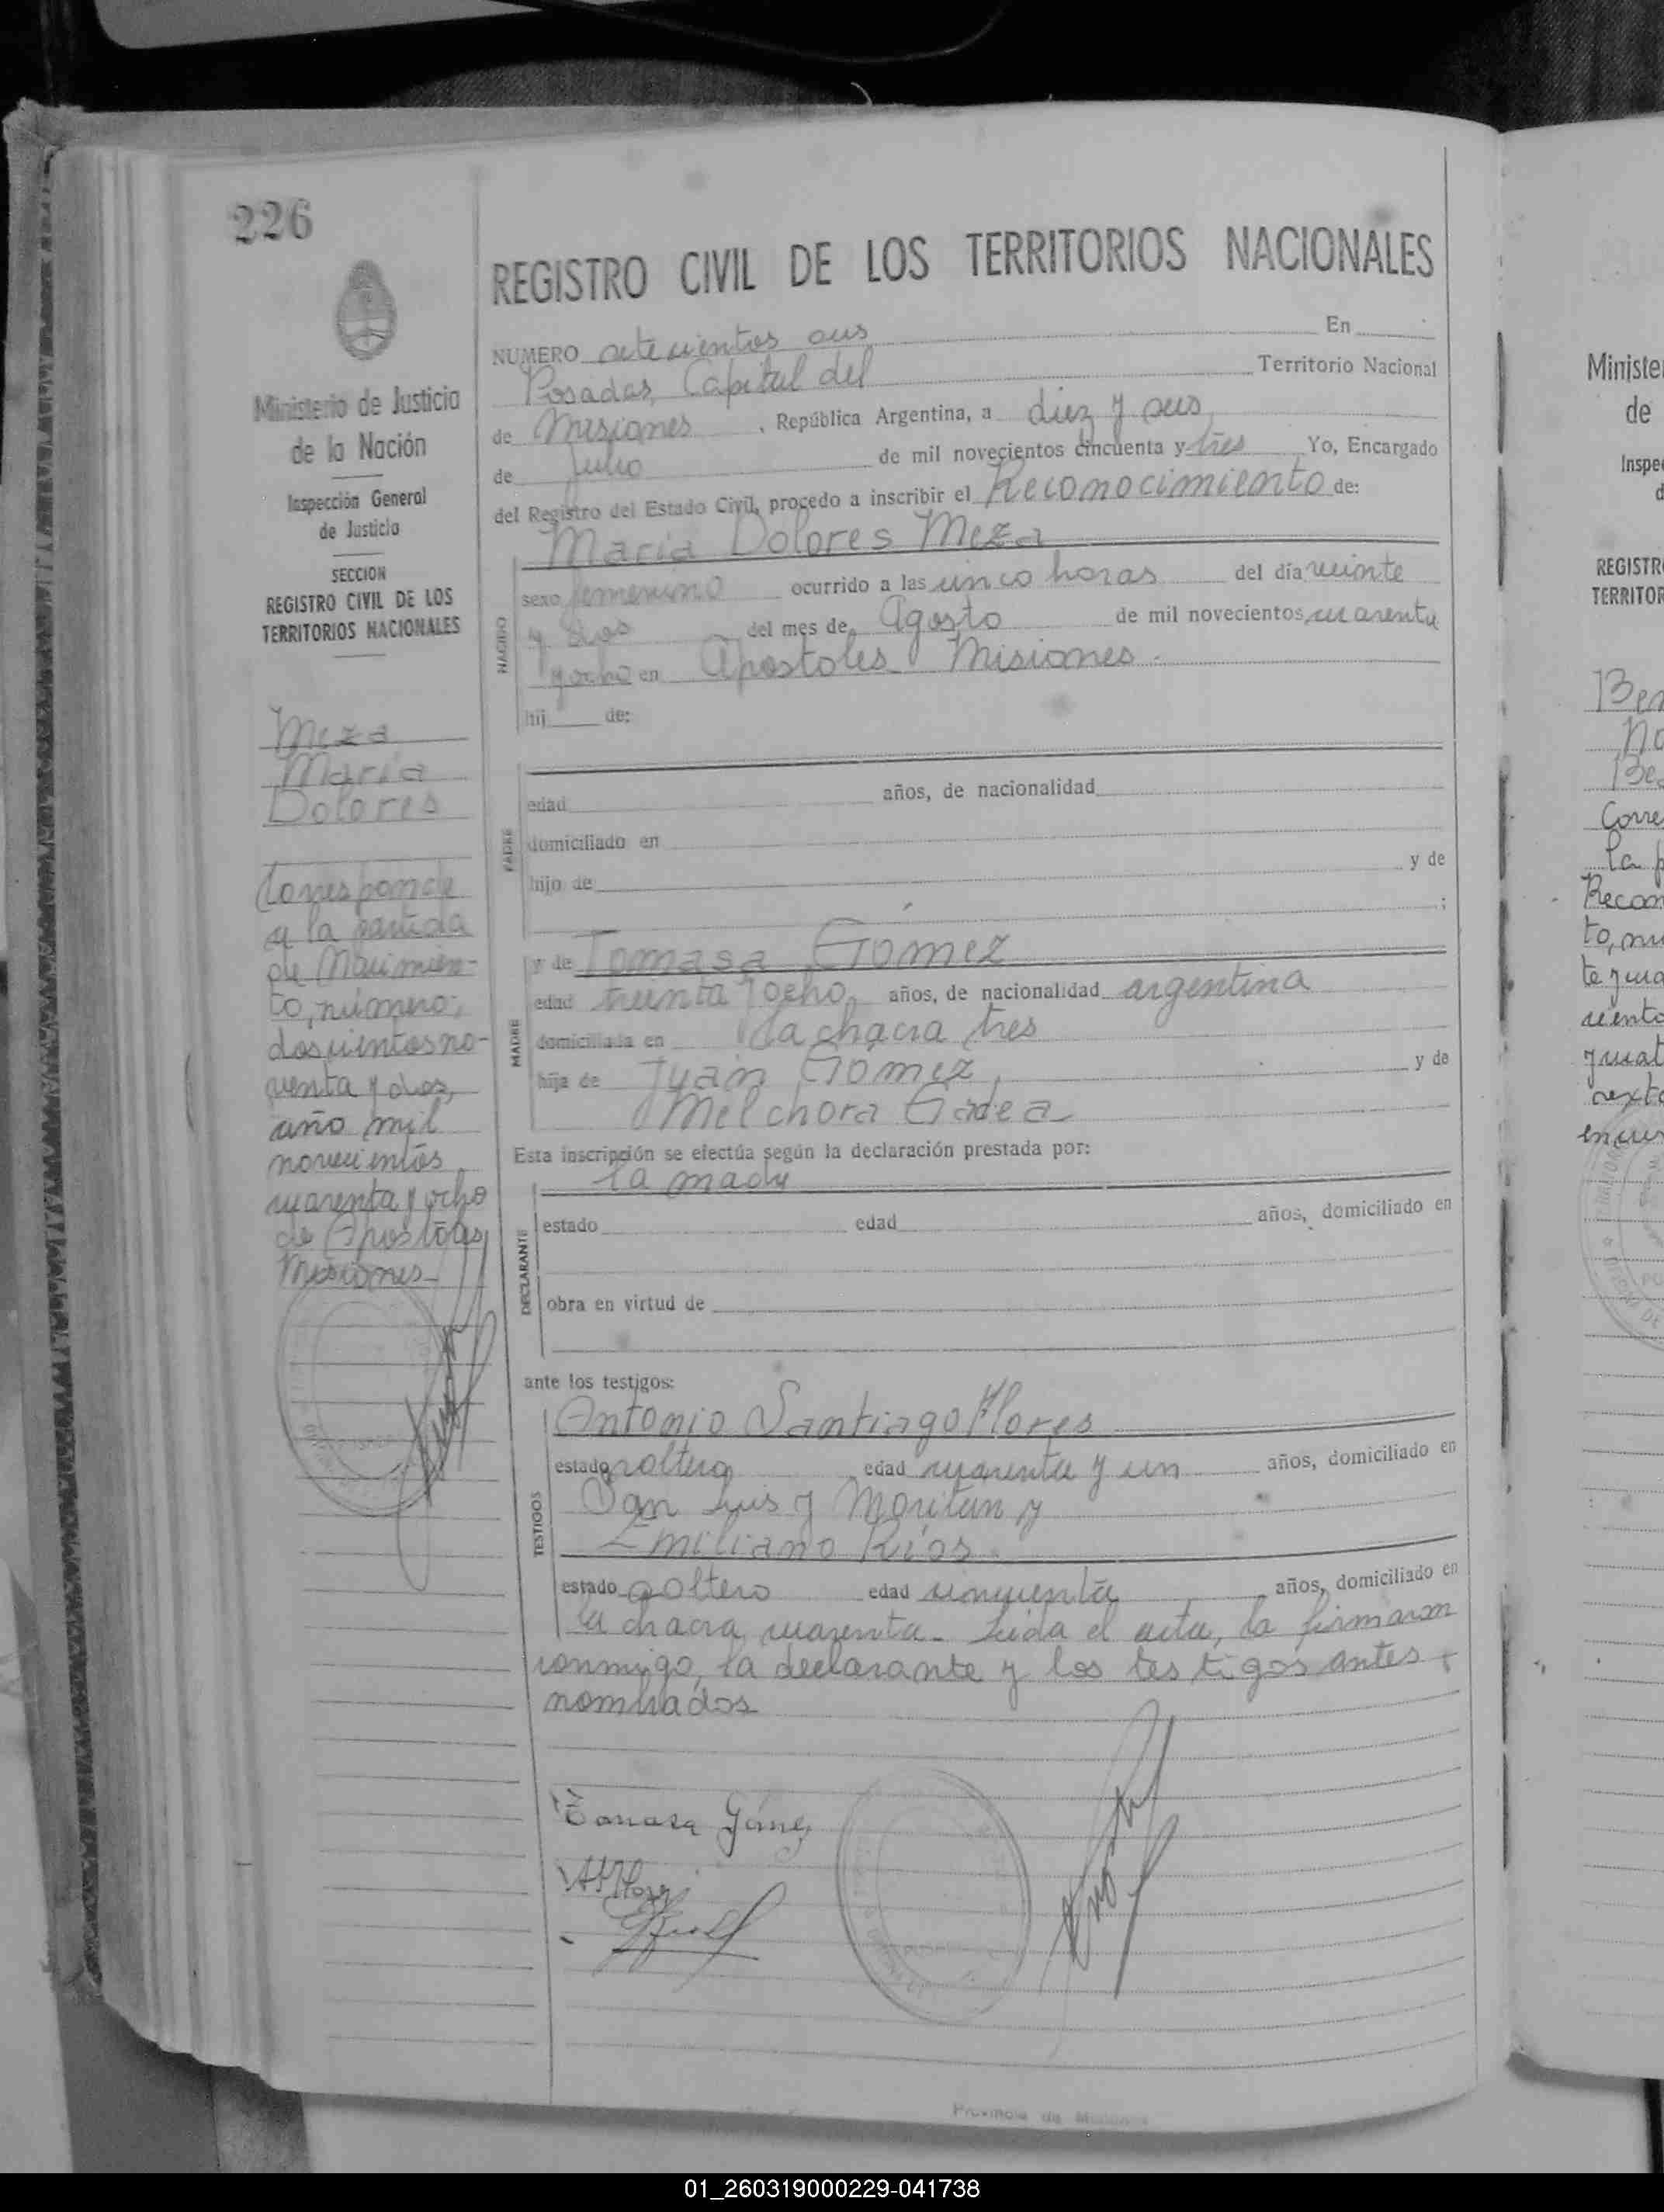 226
REGISTRO CIVIL DE LOS TERRITORIOS NACIONALES
Ministerio de Justicia
de la Nación
Inspección General
de Justicia
SECCION
REGISTRO CIVIL DE LOS
TERRITORIOS NACIONALES
Meza
María
Dolores
Corresponde
a la partida
de Nacimien-
to, número,
doscientos no-
venta y dos,
año mil
novecientos
cuarenta y ocho
de Apóstoles,
Misiones
NUMERO setecientos seis En
Posadas, Capital del Territorio Nacional
de Misiones, República Argentina, a diez y seis
de Julio de mil novecientos cincuenta y tres Yo, Encargado
del Registro del Estado Civil, procedo a inscribir el Reconocimiento de:
María Dolores Meza
NACIDO
sexo femenino ocurrido a las cinco horas del día veinte
y dos del mes de Agosto de mil novecientos cuarenta
y ocho en Apóstoles Misiones.
hij de:
PADRE
edad años, de nacionalidad
domiciliado en
hijo de y de
;
MADRE
y de Tomasa Gómez
edad treinta y ocho, años, de nacionalidad argentina
domiciliada en la chacra tres
hija de Juan Gómez, y de
Melchora Gadea
Esta inscripción se efectúa según la declaración prestada por:
la madre
DECLARANTE
estado edad años, domiciliado en
obra en virtud de
ante los testigos:
TESTIGOS
Antonio Santiago Flores
estado soltero edad cuarenta y un años, domiciliado en
San Luis y Moritan y
Emiliano Ríos.
estado soltero edad cincuenta años, domiciliado en
la chacra cuarenta. Leida el acta, la firmaron
conmigo, la declarante y los testigos antes
nombrados
Tomasa Gómez
Provincia de Misiones
Ministe
de
Inspe
d
REGISTR
TERRITOR
Ben
No
Be
Corre
la p
Recon
to, nu
te y cua
ciento
y cuat
sexto
01_260319000229-041738